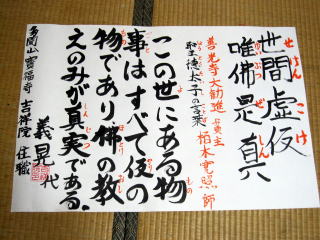 世間虚仮
せけん こけ
唯佛是真
ゆいぶつ ぜ しん
善光寺大勧進貫主 栢木寛照師
聖徳太子の言葉
この世にある物
事はすべて仮の
物であり佛の教
えのみが真実である。
多聞山寶福寺 吉祥院 住職
義晃代